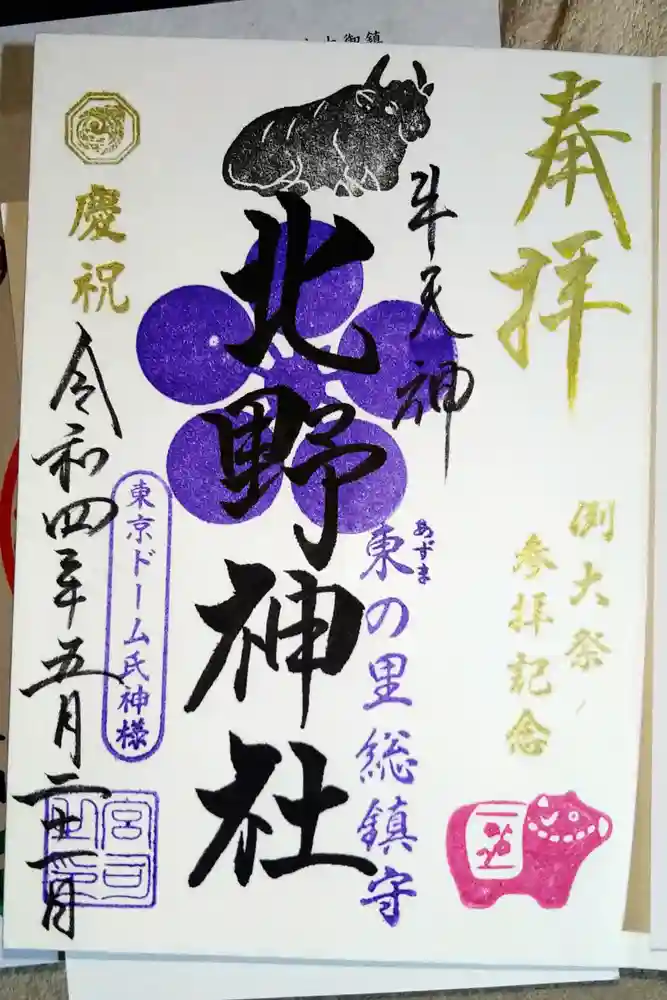 奉拝
例大祭
参拝記念
牛天神
あずま
東の里総鎮守
北野神社
慶祝
東京ドーム氏神様
令和四年五月二十一日
宮司之印